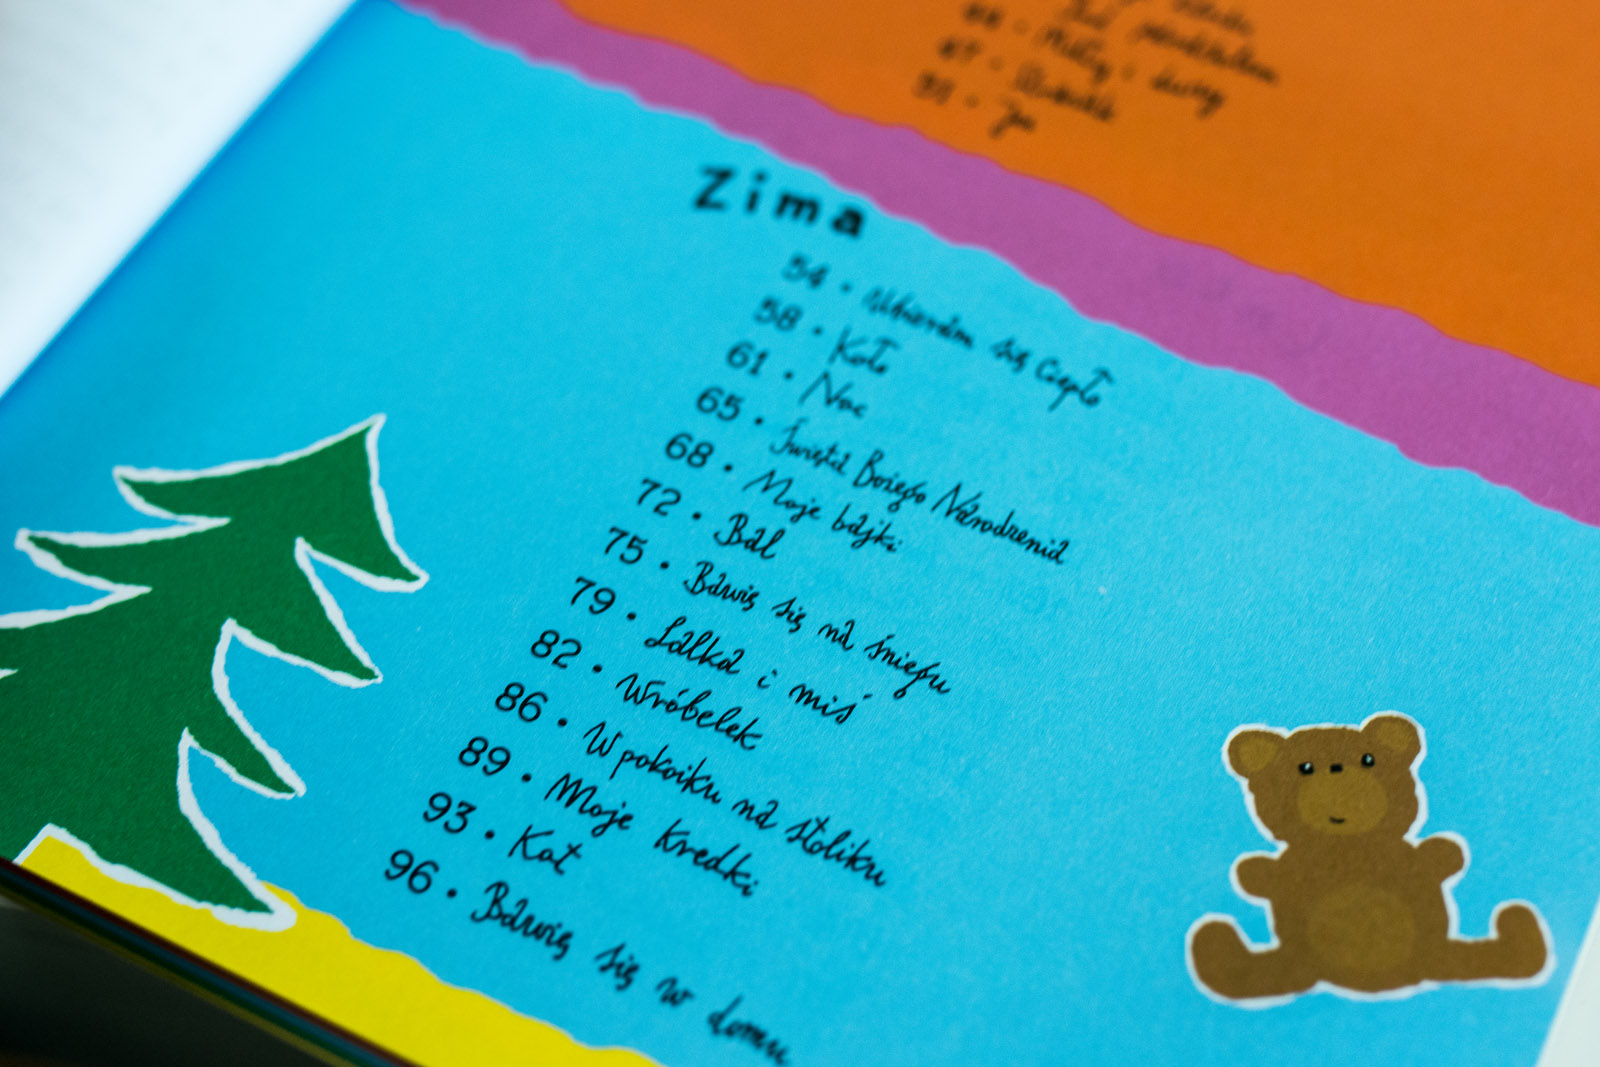 Zima
54 • Ubieram się ciepło
58 • Koło
61 • Noc
65 • Święta Bożego Narodzenia
68 • Moje bajki
72 • Bal
75 • Bawię się na śniegu
79 • Lalka i miś
82 • Wróbelek
86 • W pokoiku na stoliku
89 • Moje kredki
93 • Kot
96 • Bawię się w domu